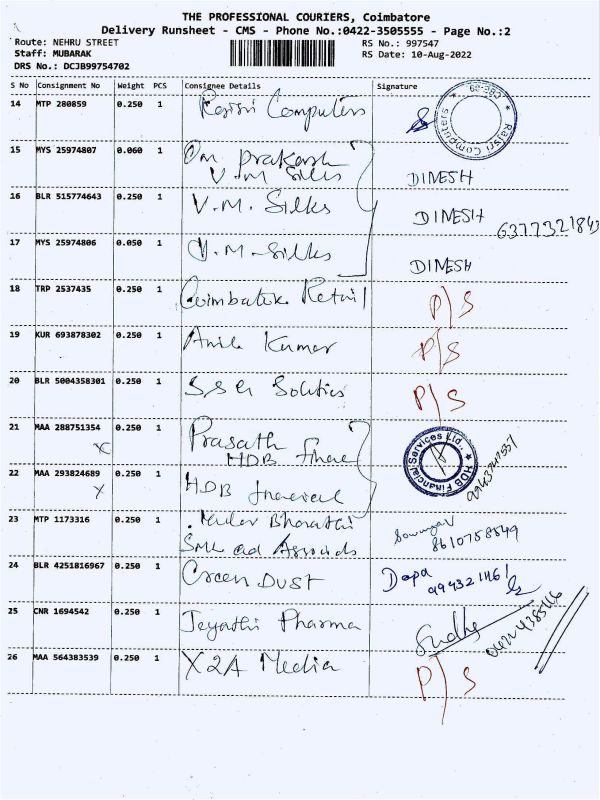 THE PROFESSIONAL COURIERS, Coimbatore
Delivery Runsheet - CMS - Phone No.:0422-3505555 - Page No.:2
Route: NEHRU STREET RS No.: 997547
Staff: MUBARAK RS Date: 10-Aug-2022
DRS No.: DCJB99754702
S No Consignment No Weight PCS Consignee Details Signature
14 MTP 280859 0.250 1 Rajsri Computers
Rajsri Computers ★ CBE-09 ★
15 MYS 25974807 0.060 1 Om prakash
V.M Silks DINESH
16 BLR 515774643 0.250 1 V.M. Silks DINESH
17 MYS 25974806 0.050 1 V.M-Silks DINESH
18 TRP 2537435 0.250 1 Coimbatore Retail P/S
19 KUR 693878302 0.250 1 Anil Kumar P/S
20 BLR 5004358301 0.250 1 P/S
21 MAA 288751354 0.250 1 Prasath
X HDB
HDB Financial Services Ltd. ★
22 MAA 293824689 0.250 1 HDB financial
X
23 MTP 1173316 0.250 1 Bharathi
8610758849
24 BLR 4251816967 0.250 1 Green DUST Depa
9943211161
25 CNR 1694542 0.250 1 Jeyathi Pharma Sudha
0422 4385416
26 MAA 564383539 0.250 1 X2A Media P/S